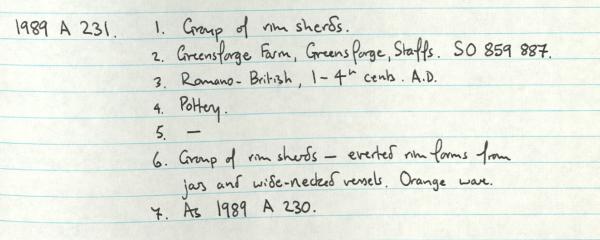 1989 A 231. 1. Group of rim sherds.
2. Greensforge Farm, Greensforge, Staffs. SO 859 887.
3. Romano-British, 1-4th cents. A.D.
4. Pottery.
5. —
6. Group of rim sherds — everted rim forms from
jars and wide-necked vessels. Orange ware.
7. As 1989 A 230.